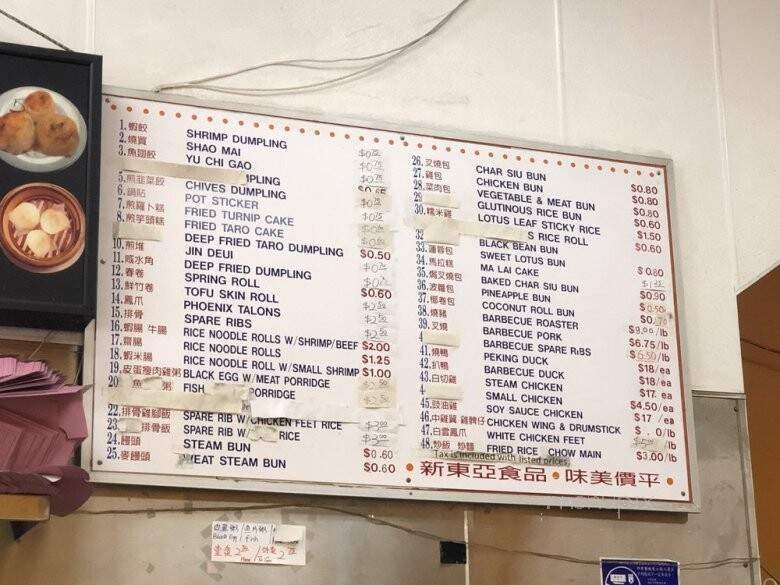 1.蝦餃 SHRIMP DUMPLING
2.燒買 SHAO MAI
3.魚翅餃 YU CHI GAO
MPLING
5.煎韭菜餃 CHIVES DUMPLING
6.鍋貼 POT STICKER
7.煎蘿卜糕 FRIED TURNIP CAKE
8.煎芋頭糕 FRIED TARO CAKE
DEEP FRIED TARO DUMPLING $0.50
10.煎堆 JIN DEUI
11.咸水角 DEEP FRIED DUMPLING $0.60
12.春卷 SPRING ROLL
13.鮮竹卷 TOFU SKIN ROLL
14.鳳爪 PHOENIX TALONS
15.排骨 SPARE RIBS
16.蝦腸 牛腸 RICE NOODLE ROLLS W/SHRIMP/BEEF $2.00
17.齋腸 RICE NOODLE ROLLS $1.25
18.蝦米腸 RICE NOODLE ROLL W/SMALL SHRIMP $1.00
19.皮蛋瘦肉雞粥 BLACK EGG W/MEAT PORRIDGE
20. 魚 粥 FISH
22.排骨雞腳飯 SPARE RIB W/CHICKEN FEET RICE
23. 排骨飯 SPARE RIB W/ RICE
24.饅頭 STEAM BUN $0.60
25.麥饅頭 EAT STEAM BUN $0.60
26.叉燒包 CHAR SIU BUN $0.80
27.雞包 CHICKEN BUN $0.80
28.菜肉包 VEGETABLE & MEAT BUN $0.80
29. GLUTINOUS RICE BUN $0.60
30.糯米雞 LOTUS LEAF STICKY RICE $1.50
S RICE ROLL $0.60
32 BLACK BEAN BUN
33.蓮蓉包 SWEET LOTUS BUN $0.80
34.馬拉糕 MA LAI CAKE
35.焗叉燒包 BAKED CHAR SIU BUN $0.90
36.波蘿包 PINEAPPLE BUN
37.椰卷包 COCONUT ROLL BUN
38.燒豬 BARBECUE ROASTER
39.叉燒 BARBECUE PORK $6.75/lb
4 BARBECUE SPARE RiBS
41.燒鴨 PEKING DUCK $18/ea
42.扒鴨 BARBECUE DUCK $18/ea
43.白切雞 STEAM CHICKEN $17 ea
4 SMALL CHICKEN $4.50/ea
45.豉油雞 SOY SAUCE CHICKEN $17 /ea
46.中雞翼 雞髀仔 CHICKEN WING & DRUMSTICK
47.白雲鳳爪 WHITE CHICKEN FEET
48.炒飯 炒麵 FRIED RICE CHOW MAIN $3.00/lb
Tax is included with listed prices
新東亞食品 • 味美價平
Black Egg / fish